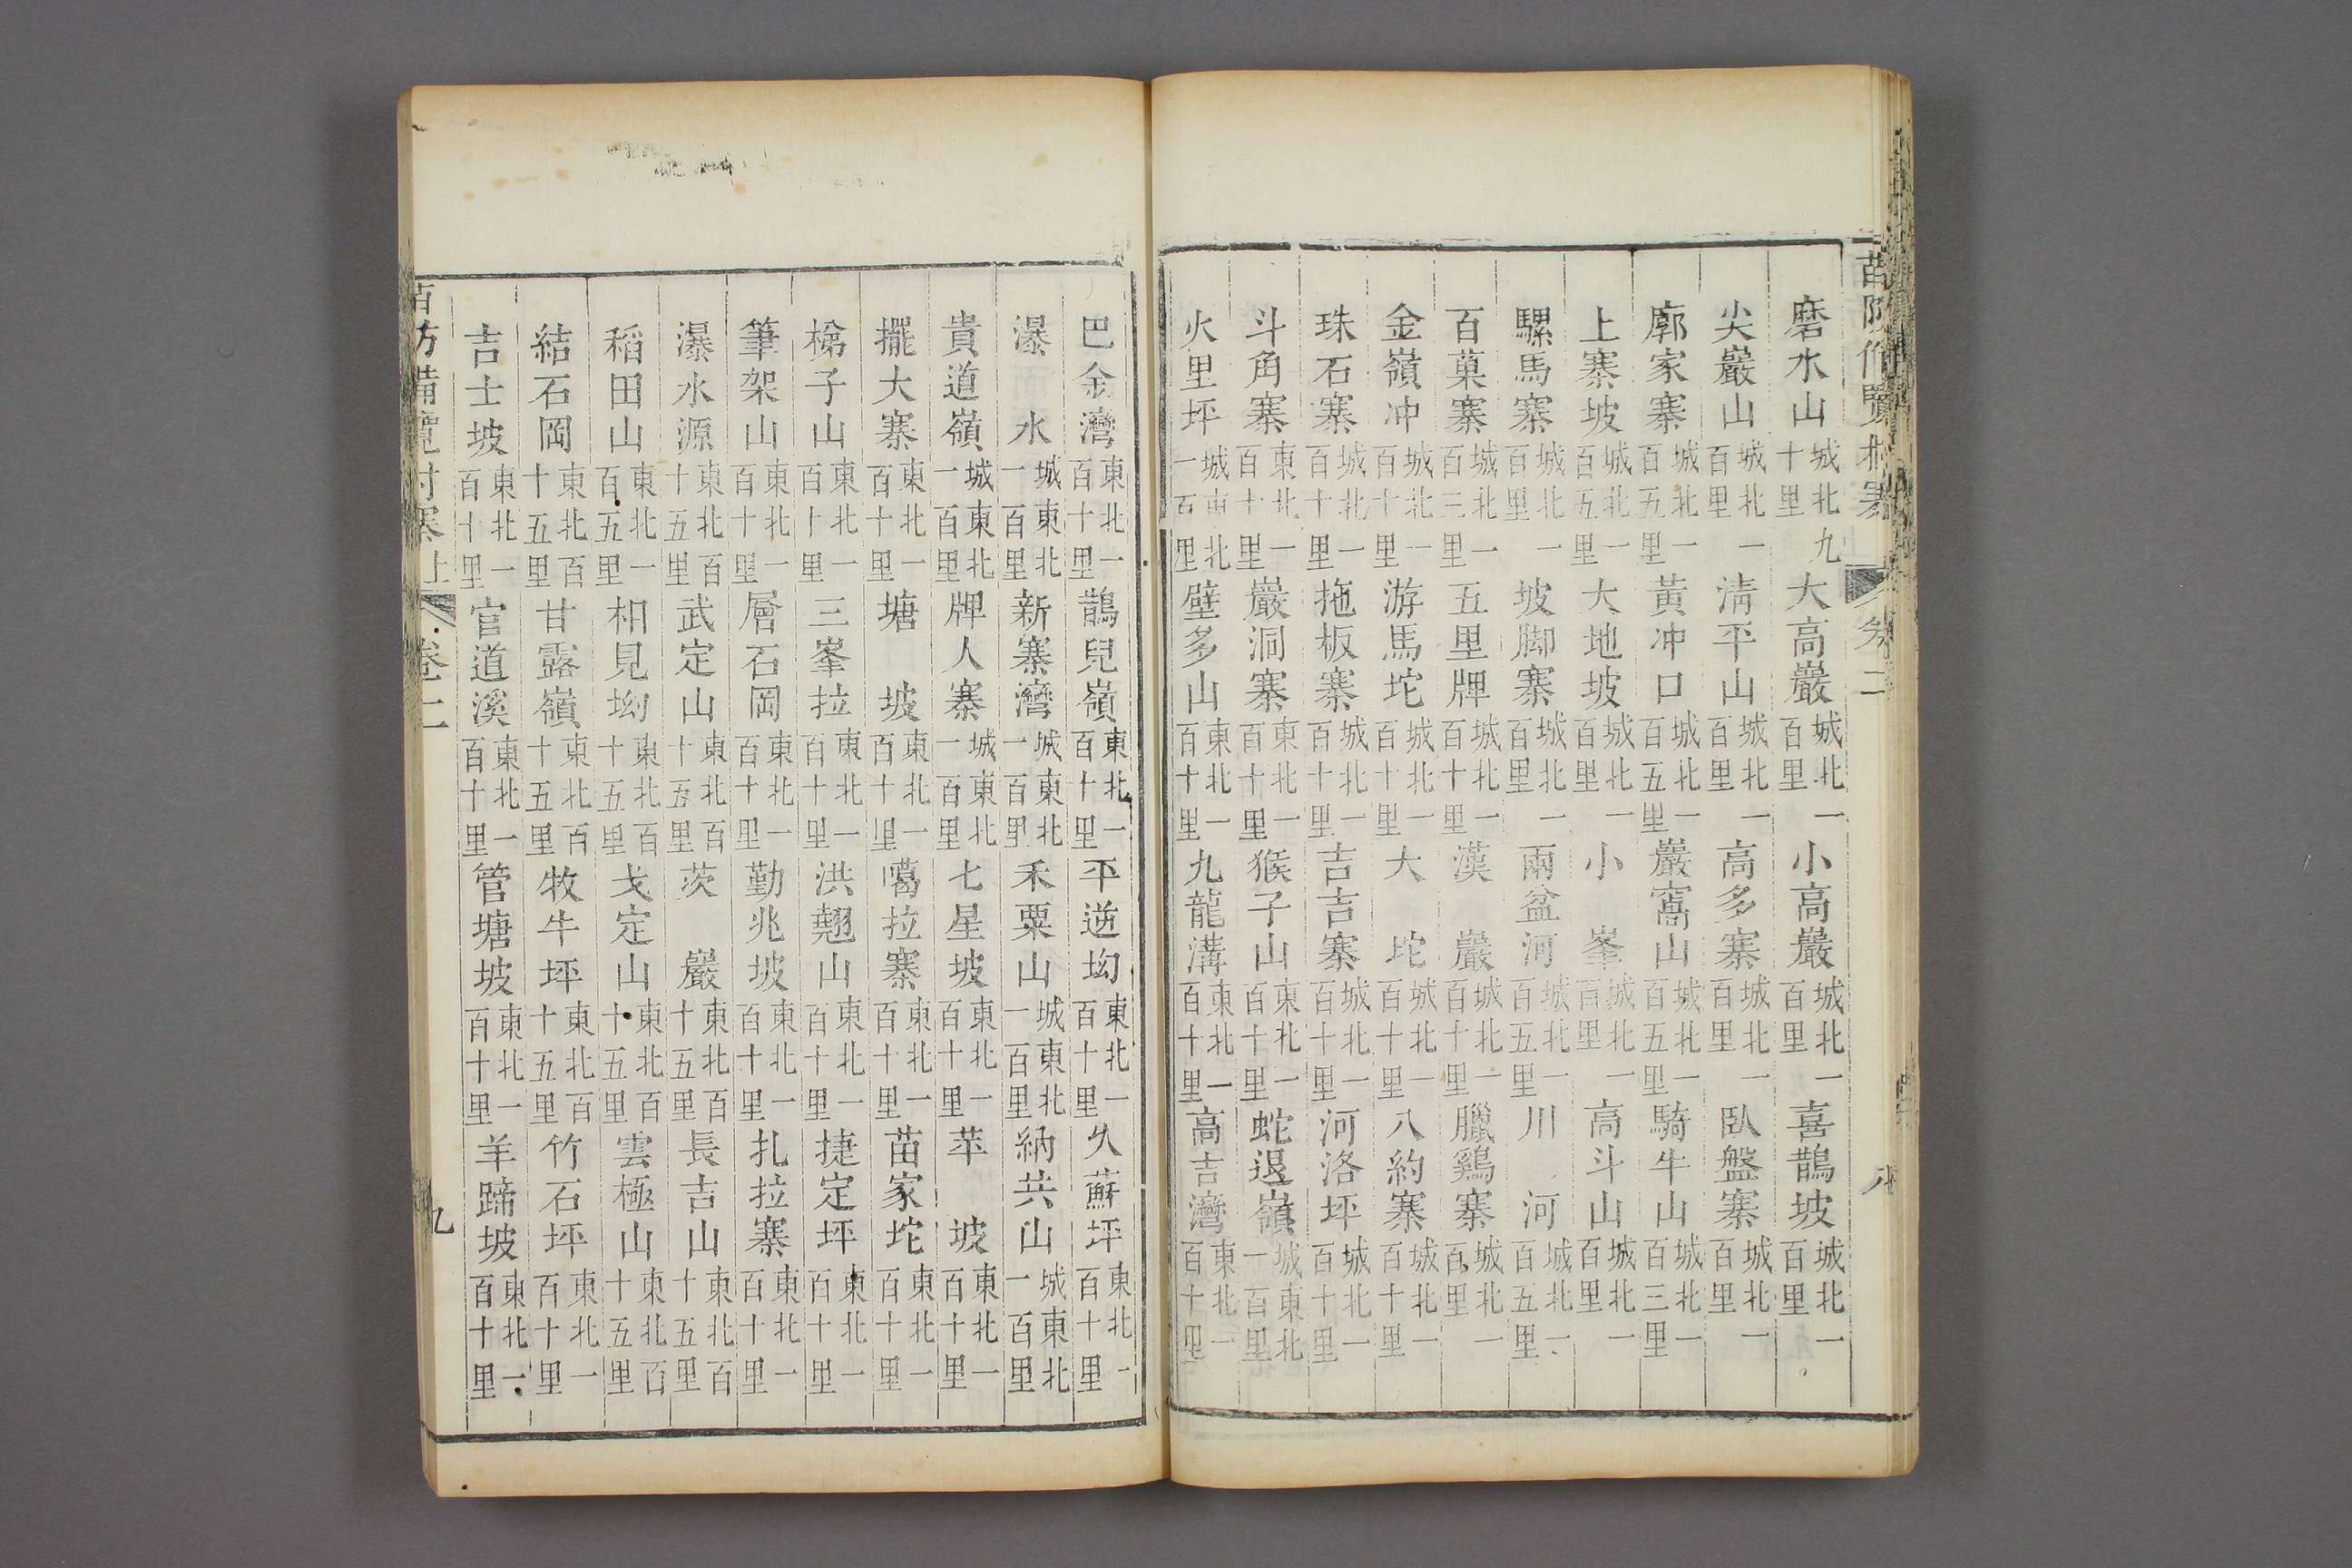 苗防備覽村寨上 卷二 八
磨水山城北九十里大高巖城北一百里小高巖城北一百里喜鵲坡城北一百里
尖巖山城北一百里清平山城北一百里高多寨城北一百里臥盤寨城北一百里
廓家寨城北一百五里黃冲口城北一百五里巖窩山城北一百五里騎牛山城北一百三里
上寨坡城北一百五里大地坡城北一百里小峯城北一百里高斗山城北一百里
騾馬寨城北一百里坡脚寨城北一百里兩盆河城北一百五里川河城北一百五里
百菓寨城北一百三里五里牌城北一百十里漢巖城北一百十里臘鷄寨城北一百里
金嶺冲城北一百十里游馬坨城北一百十里大坨城北一百十里八約寨城北一百十里
珠石寨城北一百十里拖板寨城北一百十里吉吉寨城北一百十里河洛坪城北一百十里
斗角寨東北一百十里巖洞寨東北一百十里猴子山東北一百十里蛇退嶺城東北一百里
火里坪城東北一百里壁多山東北一百十里九龍溝東北一百十里高吉灣東北一百十里
巴金灣東北一百十里鵲兒嶺東北一百十里平逆坳東北一百十里久蘇坪東北一百十里
瀑水城東北一百里新寨灣城東北一百里禾粟山城東北一百里納共山城東北一百里
貴道嶺城東北一百里牌人寨城東北一百里七星坡東北一百十里苹坡東北一百十里
擺大寨東北一百十里塘坡東北一百十里噶拉寨東北一百十里苗家坨東北一百十里
梯子山東北一百十里三峯拉東北一百十里洪翹山東北一百十里捷定坪東北一百十里
筆架山東北一百十里層石岡東北一百十里勤兆坡東北一百十里扎拉寨東北一百十里
瀑水源東北百十五里武定山東北百十五里茨巖東北百十五里長吉山東北百十五里
稻田山東北一百五里相見坳東北百十五里戈定山東北百十五里雲極山東北百十五里
結石岡東北百十五里甘露嶺東北百十五里牧牛坪東北百十五里竹石坪東北一百十里
吉士坡東北一百十里官道溪東北一百十里管塘坡東北一百十里羊蹄坡東北一百十里
苗防備覽村寨上 卷二 九